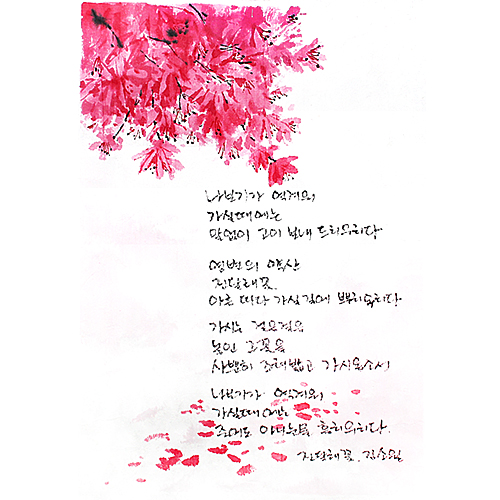 나보기가 역겨워
가실때에는
말없이 고이 보내 드리우리다
영변의 약산
진달래꽃
아름 따다 가실 길에 뿌리우리다
가시는 걸음걸음
놓인 그꽃을
사뿐히 즈려밟고 가시옵소서
나보기가 역겨워
가실때에는
죽어도 아니눈물 흘리우리다.
진달래꽃, 김소월